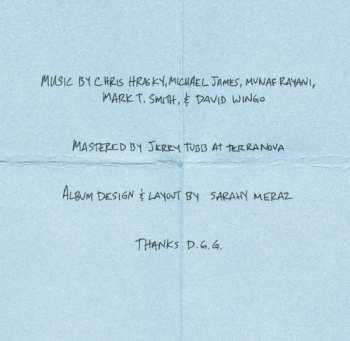 MUSIC BY CHRIS HRASKY, MICHAEL JAMES, MUNAF RAYANI,
MARK T. SMITH, & DAVID WINGO
MASTERED BY JERRY TUBB AT TERRANOVA
ALBUM DESIGN & LAYOUT BY SARAHY MERAZ
THANKS D.G.G.